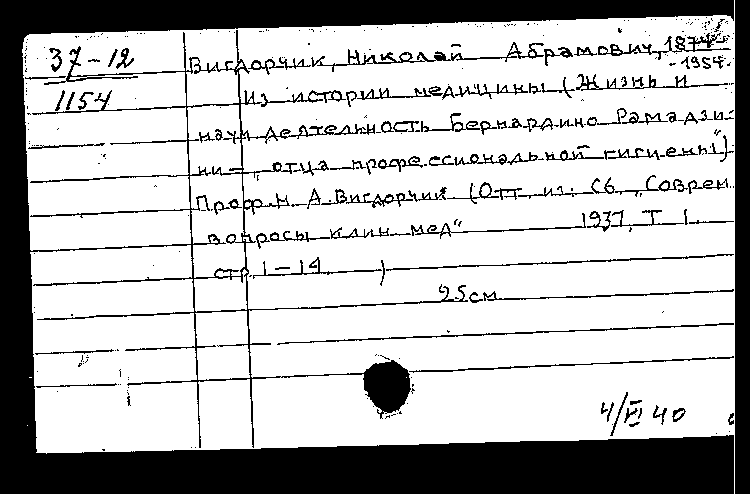 37-12
1154
Вигдорчик, Николай Абрамович, 1874-
-1954.
Из истории медицины (Жизнь и
научн деятельность Бернардино Рамадзи-
ни — "отца профессиональной гигиены")
Проф. Н. А. Вигдорчик (Отт. из: Сб. "Соврем.
вопросы клин. мед" 1937, Т. 1.
стр. 1-14. )
25 см
4/VI 40